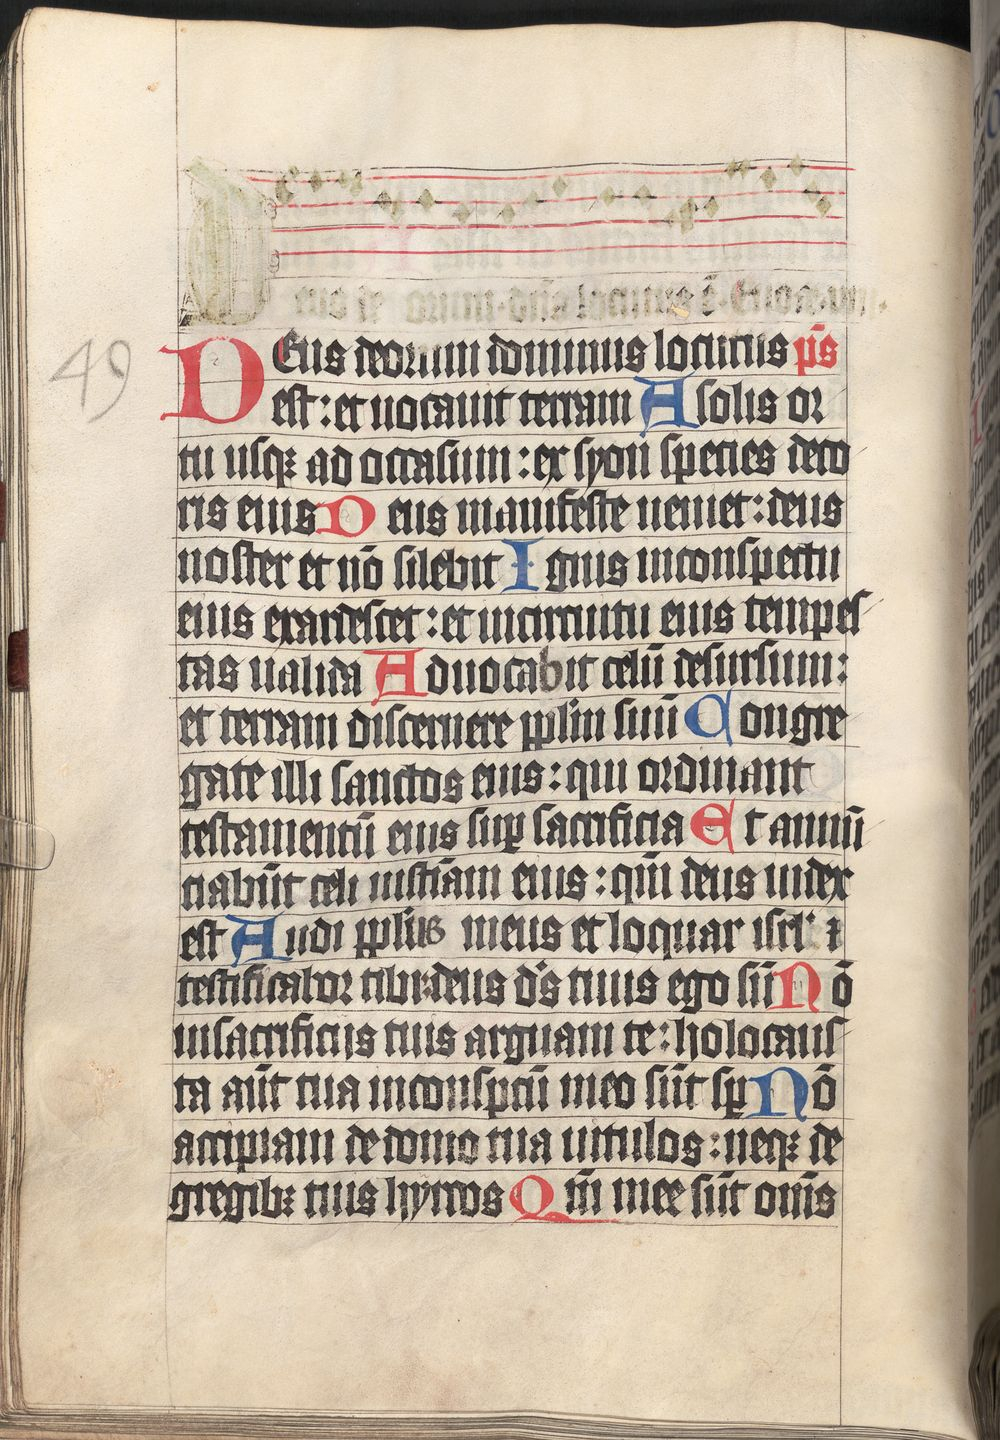 49
DEus deorum dominus locutus p̄s
est : et uocauit terram A solis or
tu usqꝫ ad occasum : ex syon species deco
ris eius Deus manifeste ueniet : deus
noster et nō silebit Ignis inconspectu
eius exardescet : et incircuitu eius tempes
tas ualida Aduocabit celū desursum :
et terram discernere pplm̄ suū Congre
gate illi sanctos eius : qui ordinant
testamentū eius suꝑ sacrificia Et annūn
ciabūt celi iustiām eius : qm̄ deus iudex
est Audi pplus meus et loquar isrl' ⁊
testificabor tibi : deus d's tuus ego sū Nō
insacrificijs tuis arguam te : holocaus
ta aūt tua inconspcū meo sūt sꝑ Nō
accipiam de domo tua uitulos : neqꝫ de
gregibꝫ tuis hyrcos Qm̄ mee sūt om̄s